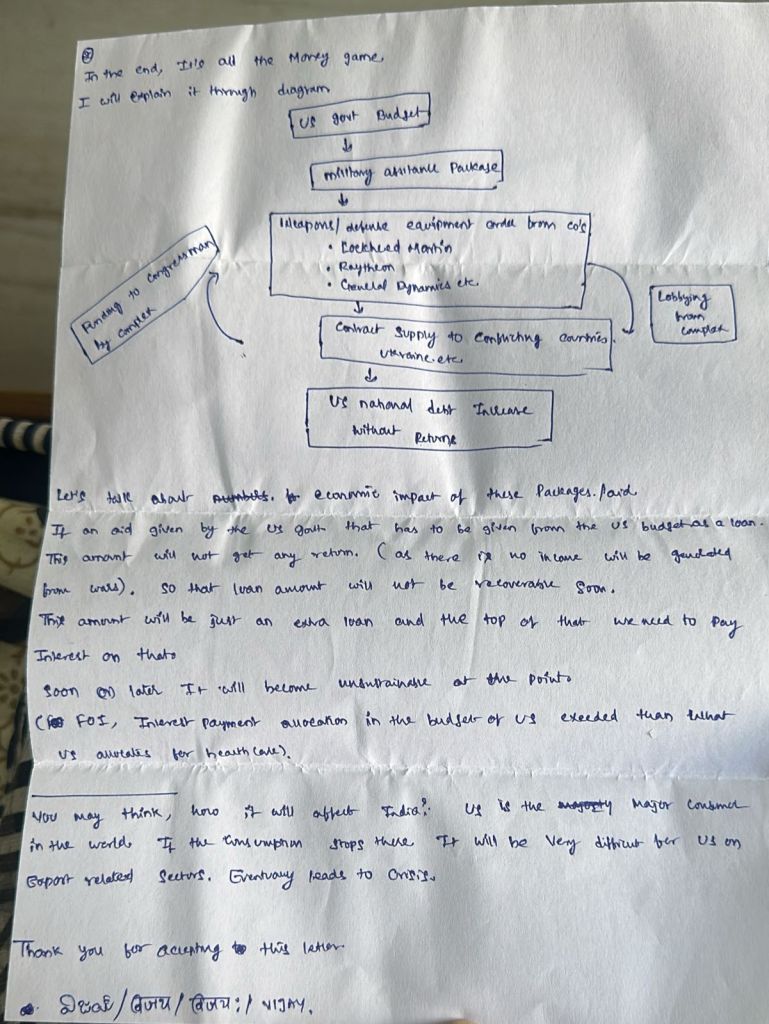 In the end, It's all the Money game,
I will explain it through diagram
US govt Budget
military assitance Package
Weapons/ defense equipment order from co's
• Lockheed Martin
• Raytheon
• General Dynamics etc.
Funding to Congressman
by complex
Lobbying
from
complex
Contract supply to conflicting countries.
Ukraine.etc,
US national debt Increase
without Returns
Let's talk about economic impact of these Packages./aid
If an aid given by the US govt that has to be given from the US budget as a loan.
This amount will not get any return. (as there is no income will be genarated
from wars). so that loan amount will not be recoverable soon.
This amount will be just an extra loan and the top of that we need to pay
Interest on that.
Soon (or) later It will become unsustainable at the point.
( FOI, Interest payment allocation in the budget of US exceeded than what
US allocates for health care).
You may think, how it will affect India?. US is the Major consumer
in the world. If the consumption stops there It will be very difficult for US on
Export related sectors. Eventually leads to crisis.
Thank you for accepting this letter.
విజయ్ / विजय / विजय: / VIJAY.